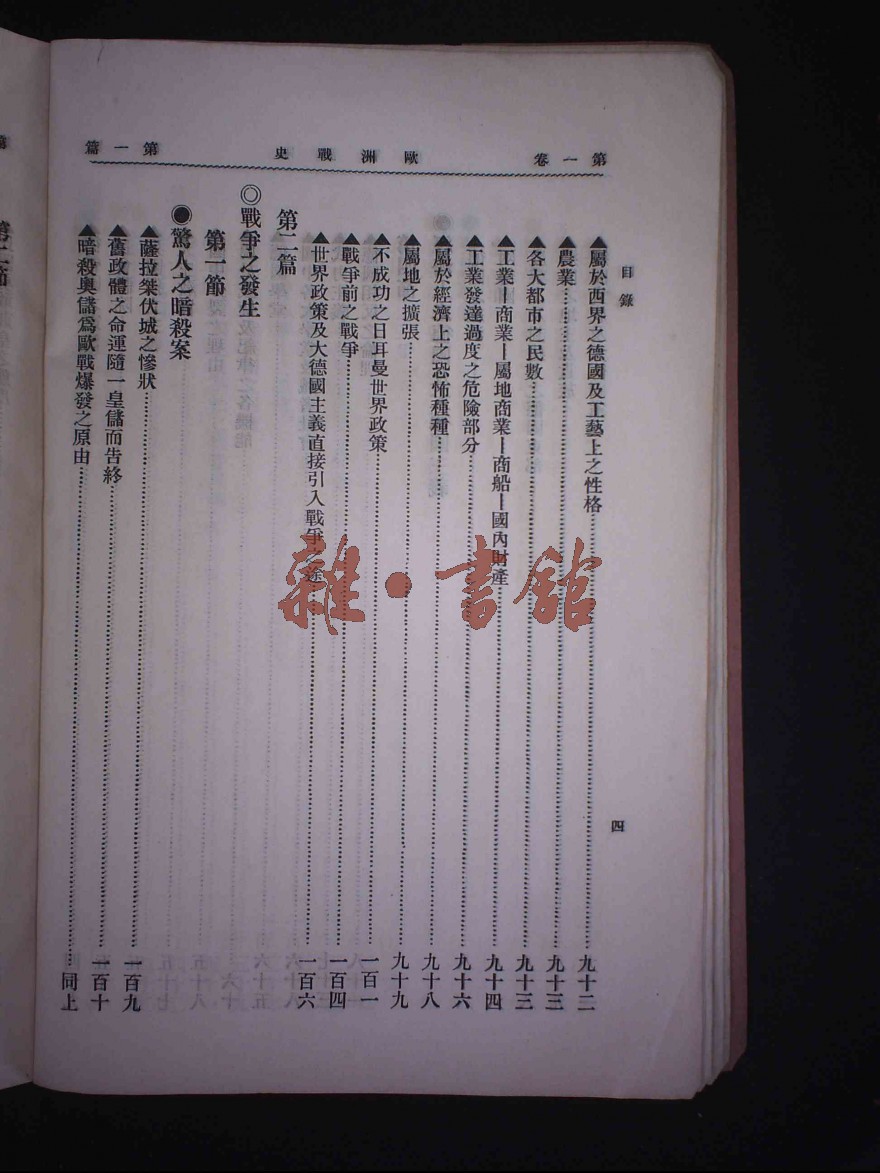 第一卷 歐洲戰史 第一篇
目錄 四
▲屬於西界之德國及工藝上之性格……九十二
▲農業……九十三
▲各大都市之民數……九十三
▲工業—商業—屬地商業—商船—國內財產……九十四
▲工業發達過度之危險部分……九十六
▲屬於經濟上之恐怖種種……九十八
▲屬地之擴張……九十九
▲不成功之日耳曼世界政策……一百一
▲戰爭前之戰爭……一百四
▲世界政策及大德國主義直接引入戰爭之途……一百六
第二篇
◎戰爭之發生
第一節
●驚人之暗殺案
▲薩拉桀伏城之慘狀……一百九
▲舊政體之命運隨一皇儲而告終……一百十
▲暗殺奧儲爲歐戰爆發之原由……同上
第二節
雜·書館